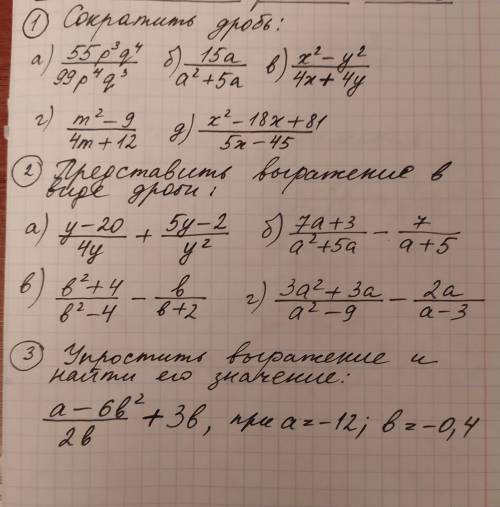 ① Сократить дробь:
а) 55p³q⁴/99p⁴q³ б) 15a/a²+5a в) x²-y²/4x+4y
г) m²-9/4m+12 д) x²-18x+81/5x-45
② Представить выражение в
виде дроби:
а) y-20/4y + 5y-2/y² б) 7a+3/a²+5a - 7/a+5
в) b²+4/b²-4 - b/b+2 г) 3a²+3a/a²-9 - 2a/a-3
③ Упростить выражение и
найти его значение:
a-6b²/2b + 3b, при a=-12; b=-0,4